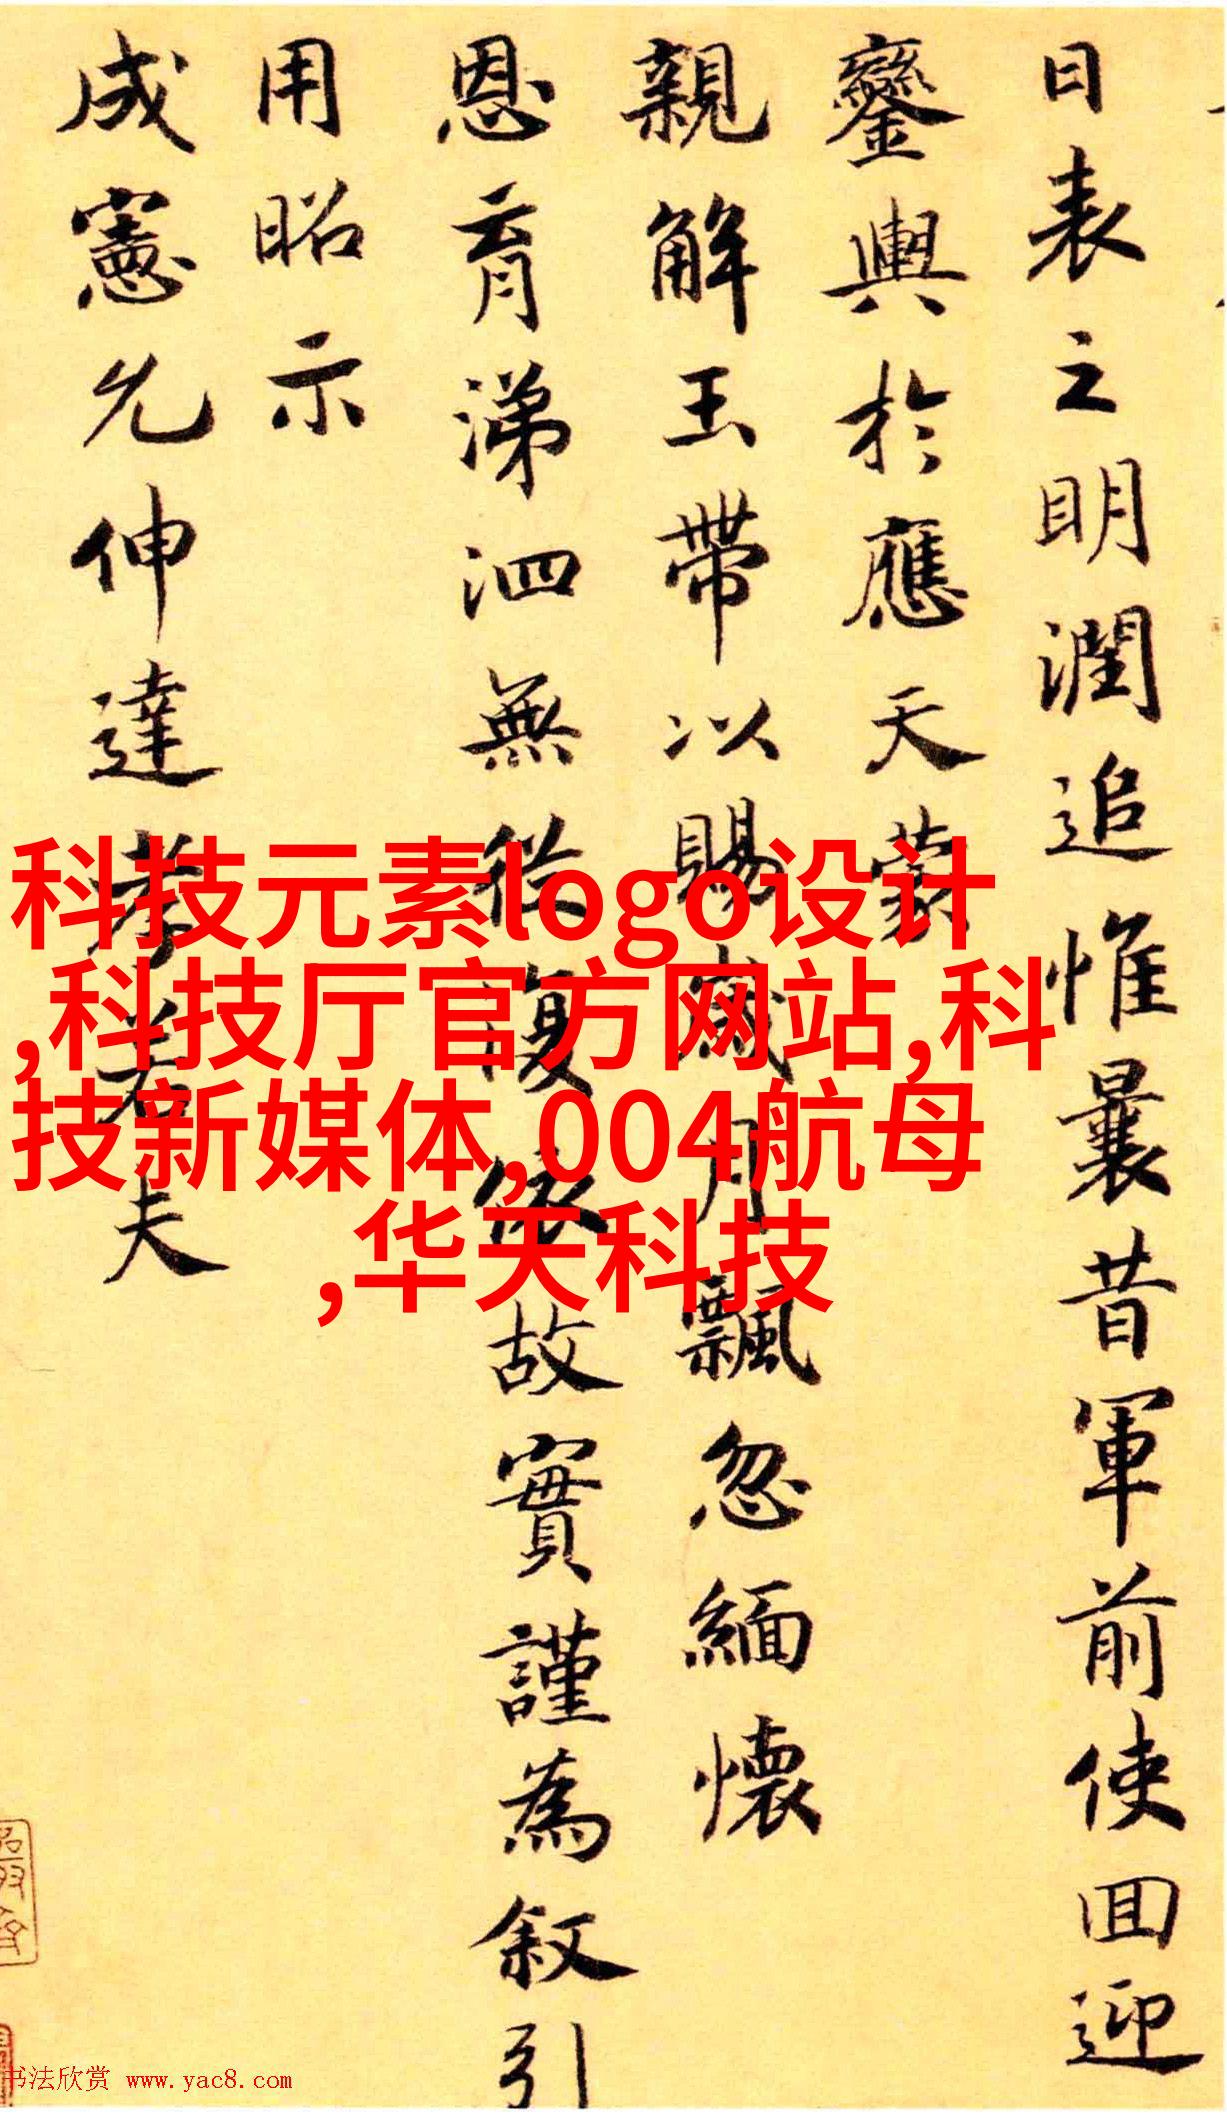 日表之明潤追惟曩昔軍前使回迎
鑾輿於應天蒙
親解玉帶以賜歲月飄忽緬懷
恩育涕泗無從復依故實謹為叙引
用昭示
成憲允伸達孝若夫
科技元素logo设计
,科技厅官方网站,科
技新媒体,004航母
,华天科技
书法欣赏 www.yac8.com